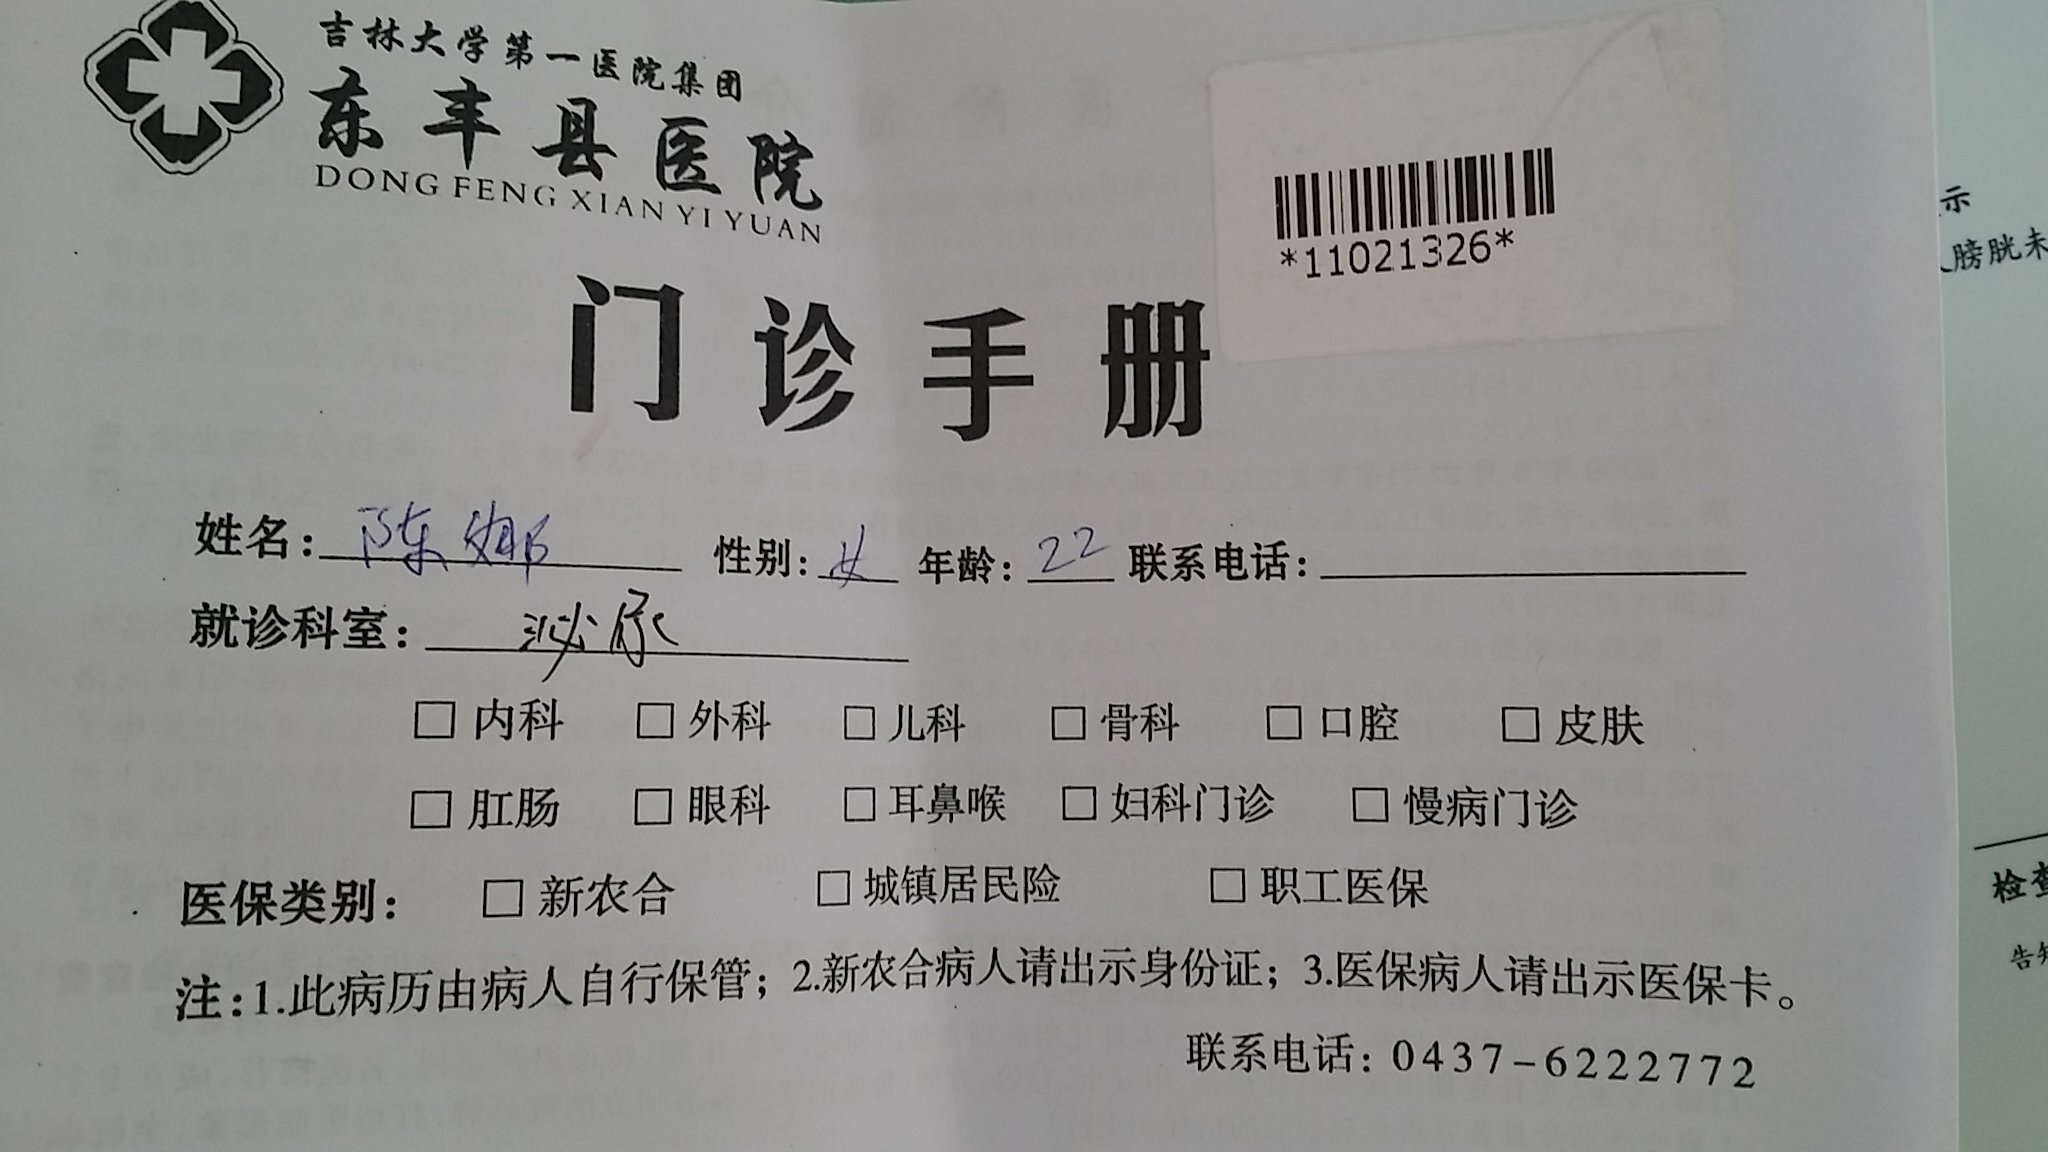 吉林大学第一医院集团
东丰县医院
DONG FENG XIAN YI YUAN
*11021326*
门诊手册
姓名: 陈娜 性别: 女 年龄: 22 联系电话:
就诊科室: 泌尿
□ 内科 □ 外科 □ 儿科 □ 骨科 □ 口腔 □ 皮肤
□ 肛肠 □ 眼科 □ 耳鼻喉 □ 妇科门诊 □ 慢病门诊
医保类别: □ 新农合 □ 城镇居民险 □ 职工医保
注:1.此病历由病人自行保管; 2.新农合病人请出示身份证; 3.医保病人请出示医保卡。
联系电话: 0437-6222772
示
膀胱未
检查
告知